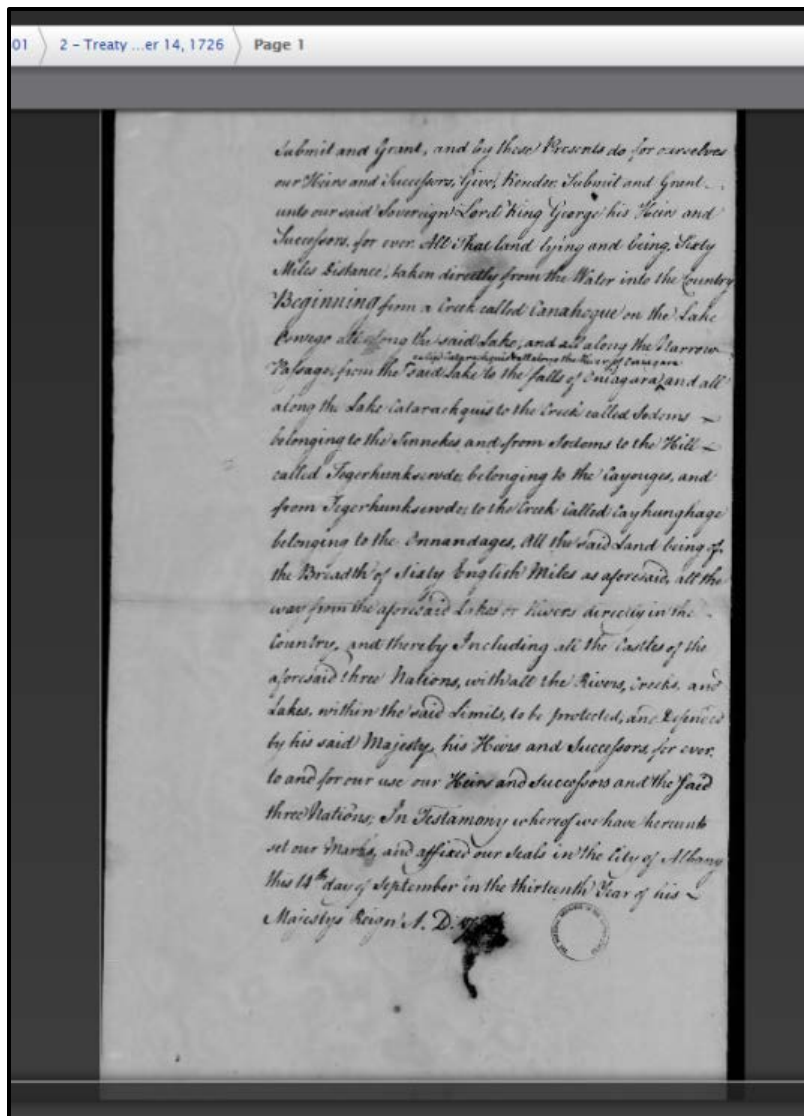 01 2 – Treaty ...er 14, 1726 Page 1
Submit and Grant, and by these Presents do for ourselves
our Heirs and Successors, Give, Render, Submit and Grant
unto our said Sovereign Lord King George his Heirs and
Successors, for ever. All that land lying and being, Sixty
Miles Distance, taken directly from the Water into the Country
Beginning from a Creek called Canahogue on the Lake
Oswego all along the said Lake, and all along the Narrow
called Catarachquis & all along the River of Oniagara
Passage, from the said Lake to the falls of Oniagara, and all
along the Lake Catarachquis to the Creek called Sodoms
belonging to the Sinnekes and from Sodoms to the Hill
called Tegerhunkserode, belonging to the Cayouges, and
from Tegerhunkserode, to the Creek Called Cayhunghage
belonging to the Onnandages, All the said Land being of
the Breadth of Sixty English Miles as aforesaid, all the
way from the aforesaid Lakes or Rivers directly in the
Country, and thereby Including all the Castles of the
aforesaid three Nations, with all the Rivers, Creeks, and
Lakes, within the said Limits, to be protected, and Defended
by his said Majesty, his Heirs and Successors, for ever.
to and for our use our Heirs and Successors and the Said
three Nations; In Testimony whereof we have hereunto
set our Marks, and affixed our Seals in the City of Albany
this 14th day of September in the thirteenth Year of his
Majestys Reign A. D.